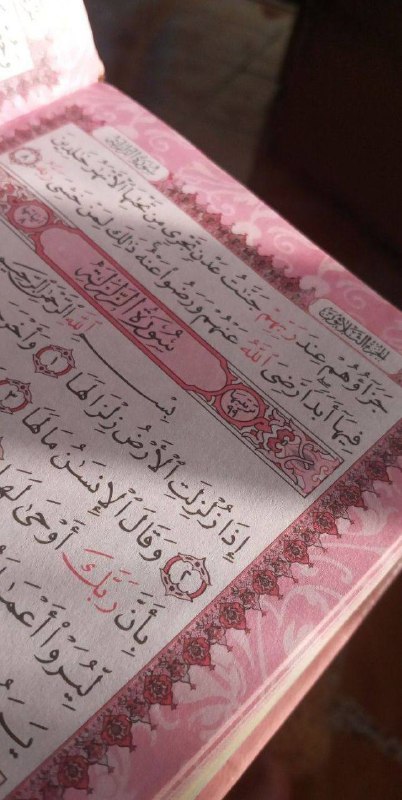 الجزء الثلاثون
سورة الزلزلة
جَزَآؤُهُمْ عِندَ رَبِّهِمْ جَنَّٰتُ عَدْنٍ تَجْرِى مِن تَحْتِهَا ٱلْأَنْهَٰرُ خَٰلِدِينَ
فِيهَآ أَبَدًا رَّضِىَ ٱللَّهُ عَنْهُمْ وَرَضُوا۟ عَنْهُ ذَٰلِكَ لِمَنْ خَشِىَ رَبَّهُۥ ٨
سُورَةُ الزَّلْزَلَةِ
بِسْمِ ٱللَّهِ ٱلرَّحْمَٰنِ ٱلرَّحِيمِ
إِذَا زُلْزِلَتِ ٱلْأَرْضُ زِلْزَالَهَا ١ وَأَخْرَجَ
٢ وَقَالَ ٱلْإِنسَٰنُ مَا لَهَا ٣
بِأَنَّ رَبَّكَ أَوْحَىٰ لَهَا
لِّيُرَوْا۟ أَعْمَٰ